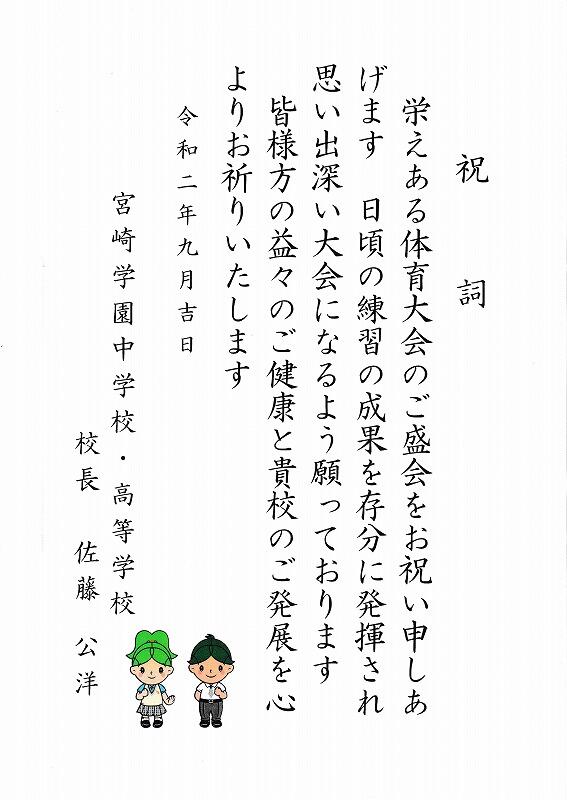 祝　詞
栄えある体育大会のご盛会をお祝い申しあ
げます　日頃の練習の成果を存分に発揮され
思い出深い大会になるよう願っております
皆様方の益々のご健康と貴校のご発展を心
よりお祈りいたします
令和二年九月吉日
宮崎学園中学校・高等学校
校長　佐藤　公洋